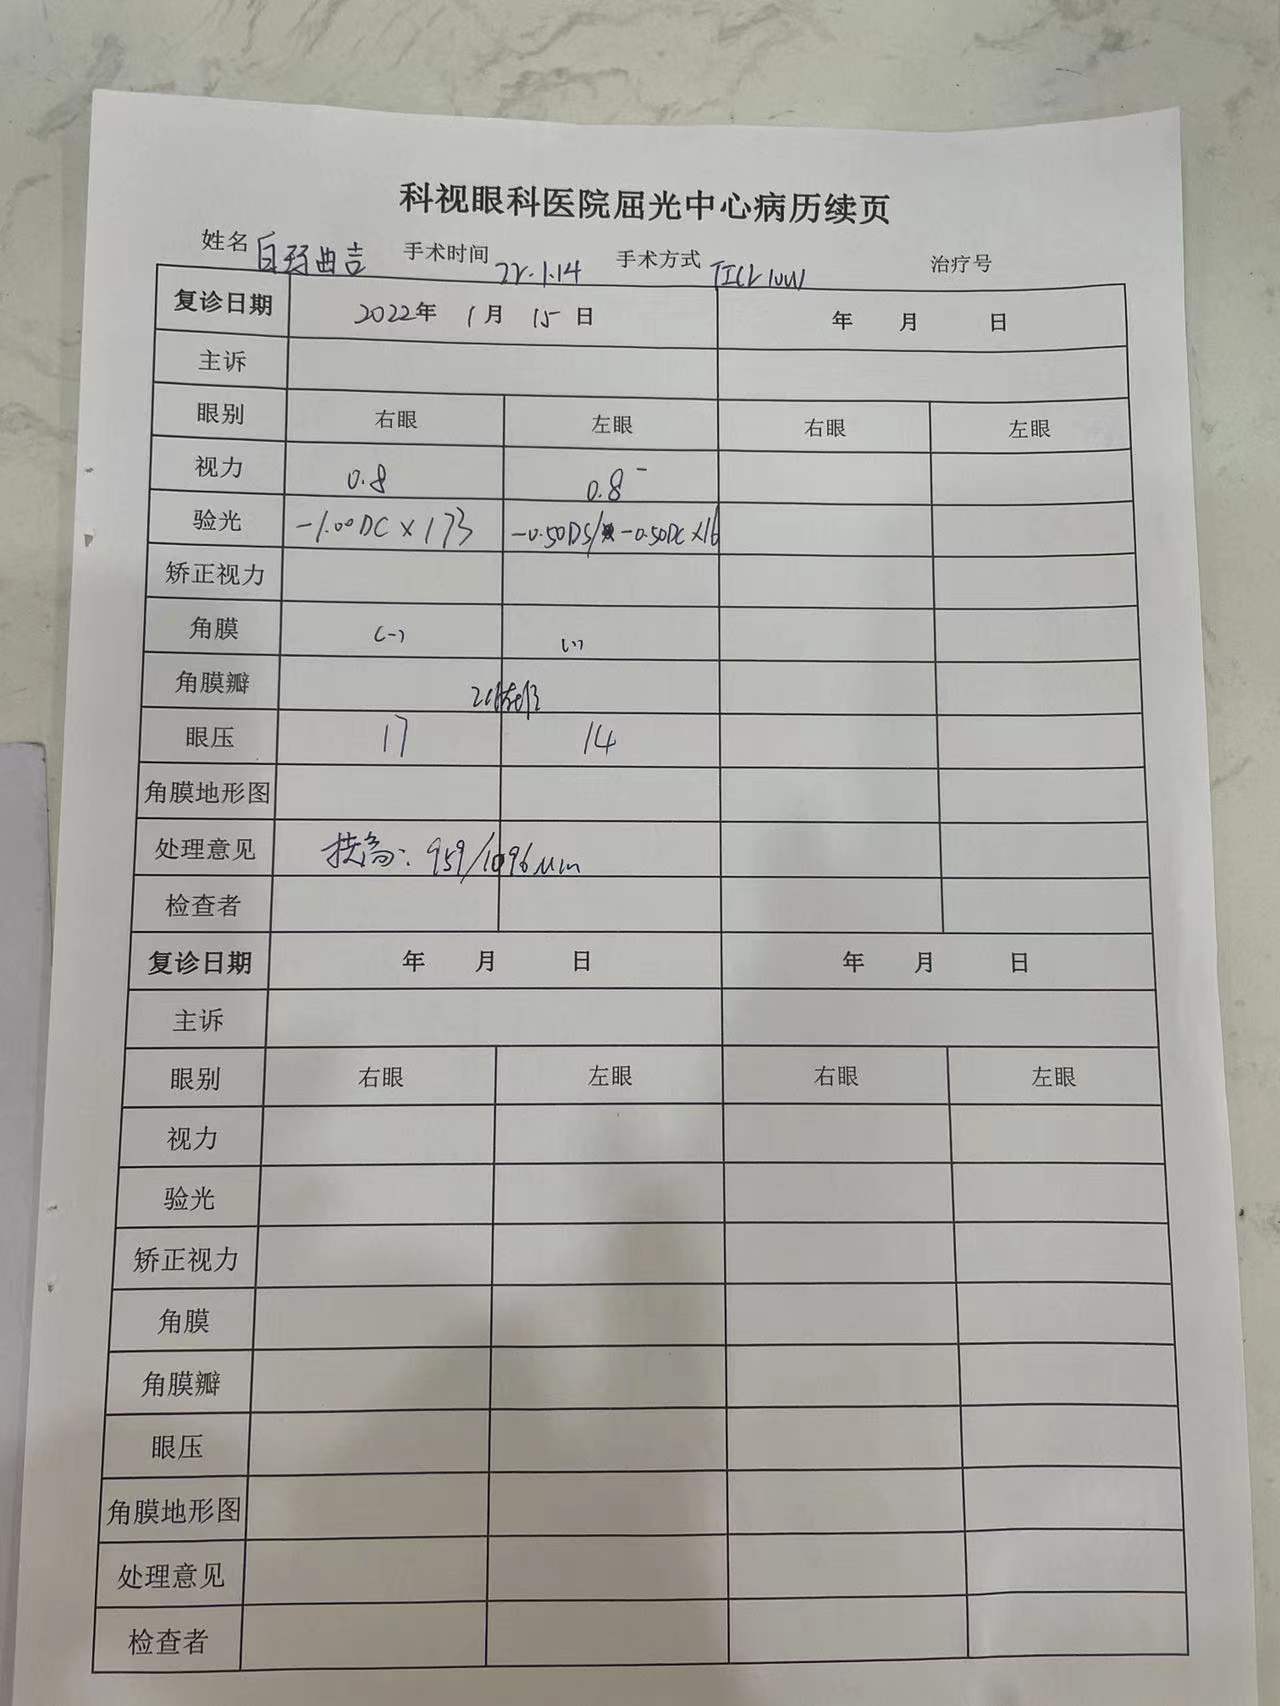 科视眼科医院屈光中心病历续页
姓名 白玛曲吉 手术时间 22.1.14 手术方式 TICL 治疗号
复诊日期 2022年 1月 15日 年 月 日
主诉
眼别 右眼 左眼 右眼 左眼
视力 0.8 0.8⁻
验光 -1.00DC×173 -0.50DS/-0.50DC×16
矫正视力
角膜 (-) (-)
角膜瓣
眼压 17 14
角膜地形图
处理意见 拱高: 959/1096μm
检查者
复诊日期 年 月 日 年 月 日
主诉
眼别 右眼 左眼 右眼 左眼
视力
验光
矫正视力
角膜
角膜瓣
眼压
角膜地形图
处理意见
检查者